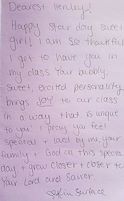 Dearest Henley!
Happy star day sweet
girl! I am so thankful
I got to have you in
my class. Your bubbly,
sweet, excited personality
brings joy to our class
in a way that is unique
to you! I pray you feel
special + loved by me, your
family + God on this special
day + grow closer + closer to
Your Lord and Savior